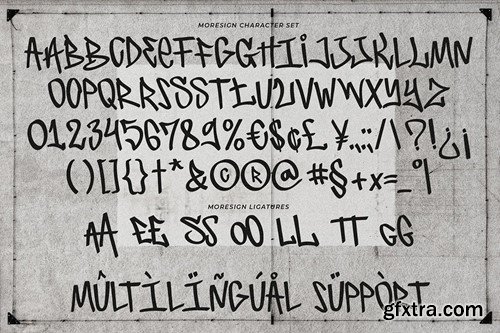 MORESIGN CHARACTER SET
AABBCDEEFFGGHIIJJJKKLLMN
OOPQRRSSSTŁUZVWWXYYZ
0123456789%€$¢£ ¥.,:;/\|?!¿¡
()[]{}†*&©®@#§+x=_°|
MORESIGN LIGATURES
AA EE SS OO LL TT GG
MÛLTÌLÏÑGÚÅL SÜPPÒRT
gfxtra.com